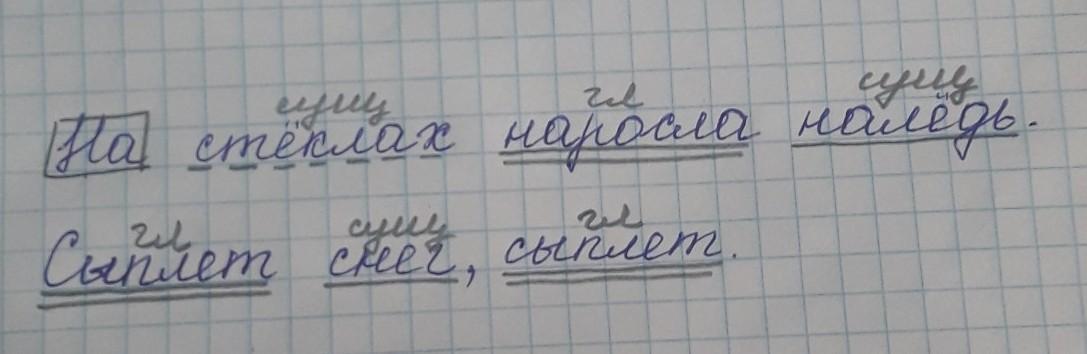 сущ гл сущ
На стёклах наросла наледь.
гл сущ гл
Сыплет снег, сыплет.